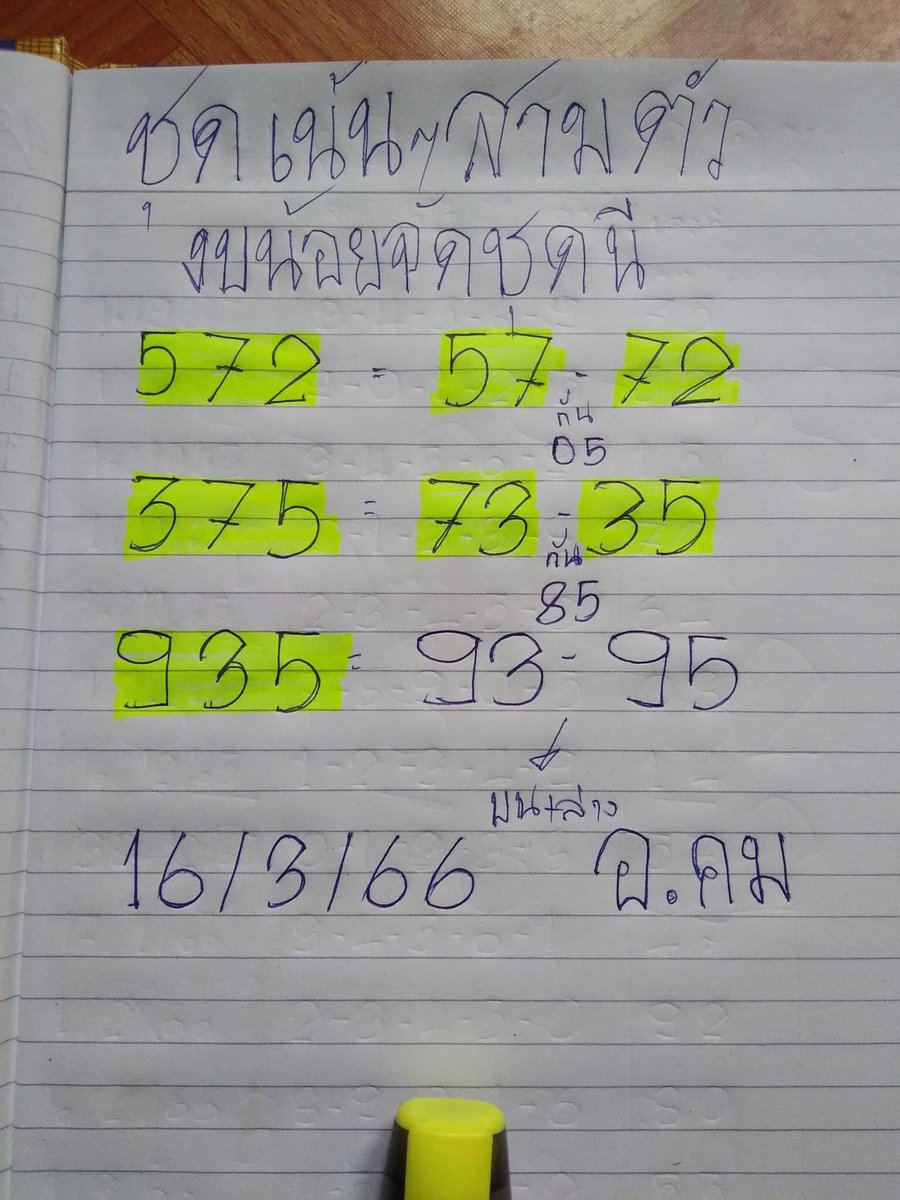 ชุดเน้นๆสามตัว
งบน้อยจัดชุดนี้
572 = 57 - 72
กัน
05
375 = 73 - 35
กัน
85
935 = 93 - 95
บน+ล่าง
16/3/66 อ.คม